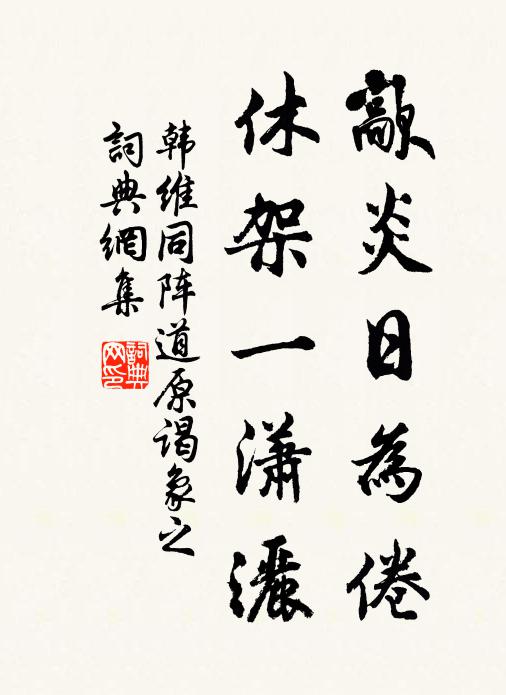 歊炎日為倦
休架一瀟灑
韩维同阵道原谒象之
詞典網集
詞典网印